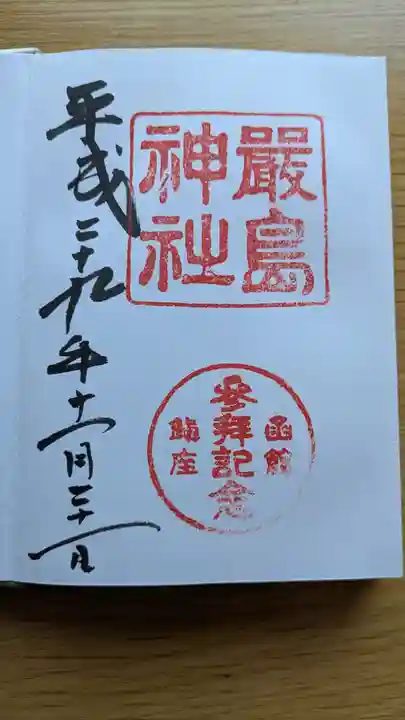 嚴島
神社
函館
參拜記念
鎮座
平成二十九年十一月二十一日